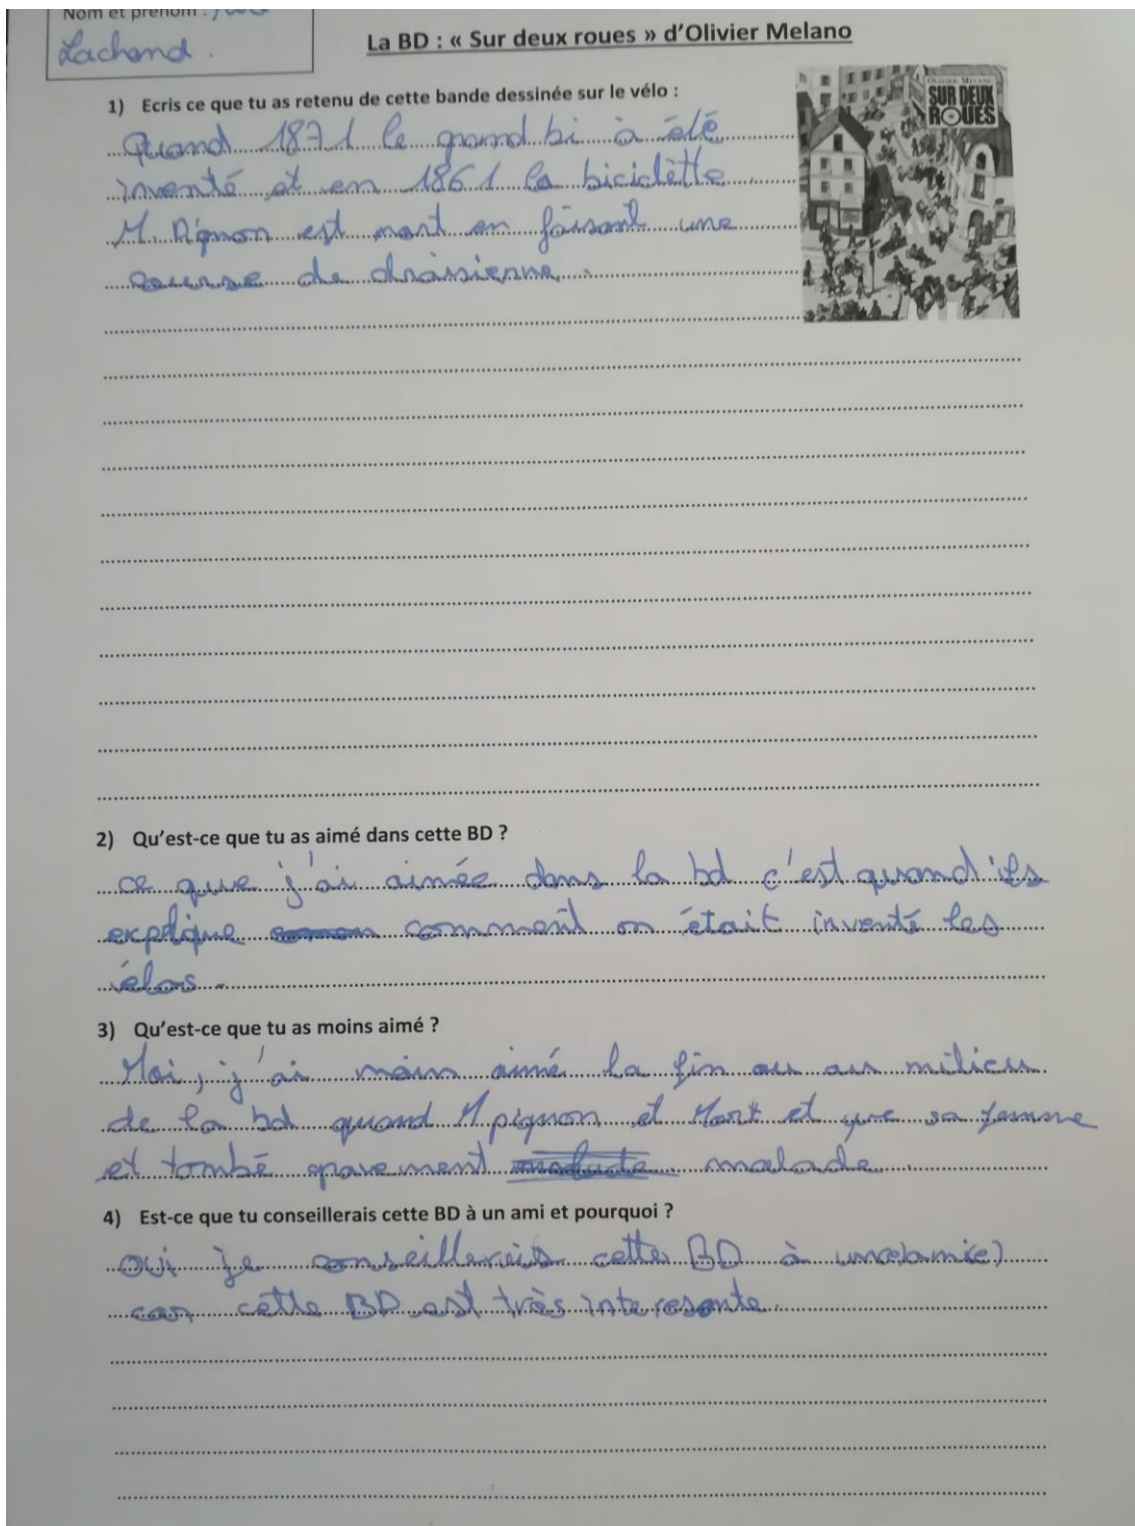 Nom et prénom :
Lachand.
La BD : « Sur deux roues » d'Olivier Melano
1) Ecris ce que tu as retenu de cette bande dessinée sur le vélo :
OLIVIER MELANO
SUR DEUX
ROUES
Quand 1871 le grand bi à été
inventé et en 1861 la biciclètte
M. Pignon est mort en faisant une
course de draisienne.
2) Qu'est-ce que tu as aimé dans cette BD ?
ce que j'ai aimée dans la bd c'est quand ils
explique comment on était inventé les
vélos.
3) Qu'est-ce que tu as moins aimé ?
Moi, j'ai moin aimé la fin ou au milieu
de la bd quand M pignon et Mort et que sa femme
et tombé gravement malade.
4) Est-ce que tu conseillerais cette BD à un ami et pourquoi ?
oui je conseillereis cette BD à un(e)ami(e)
car cette BD est très interesente.